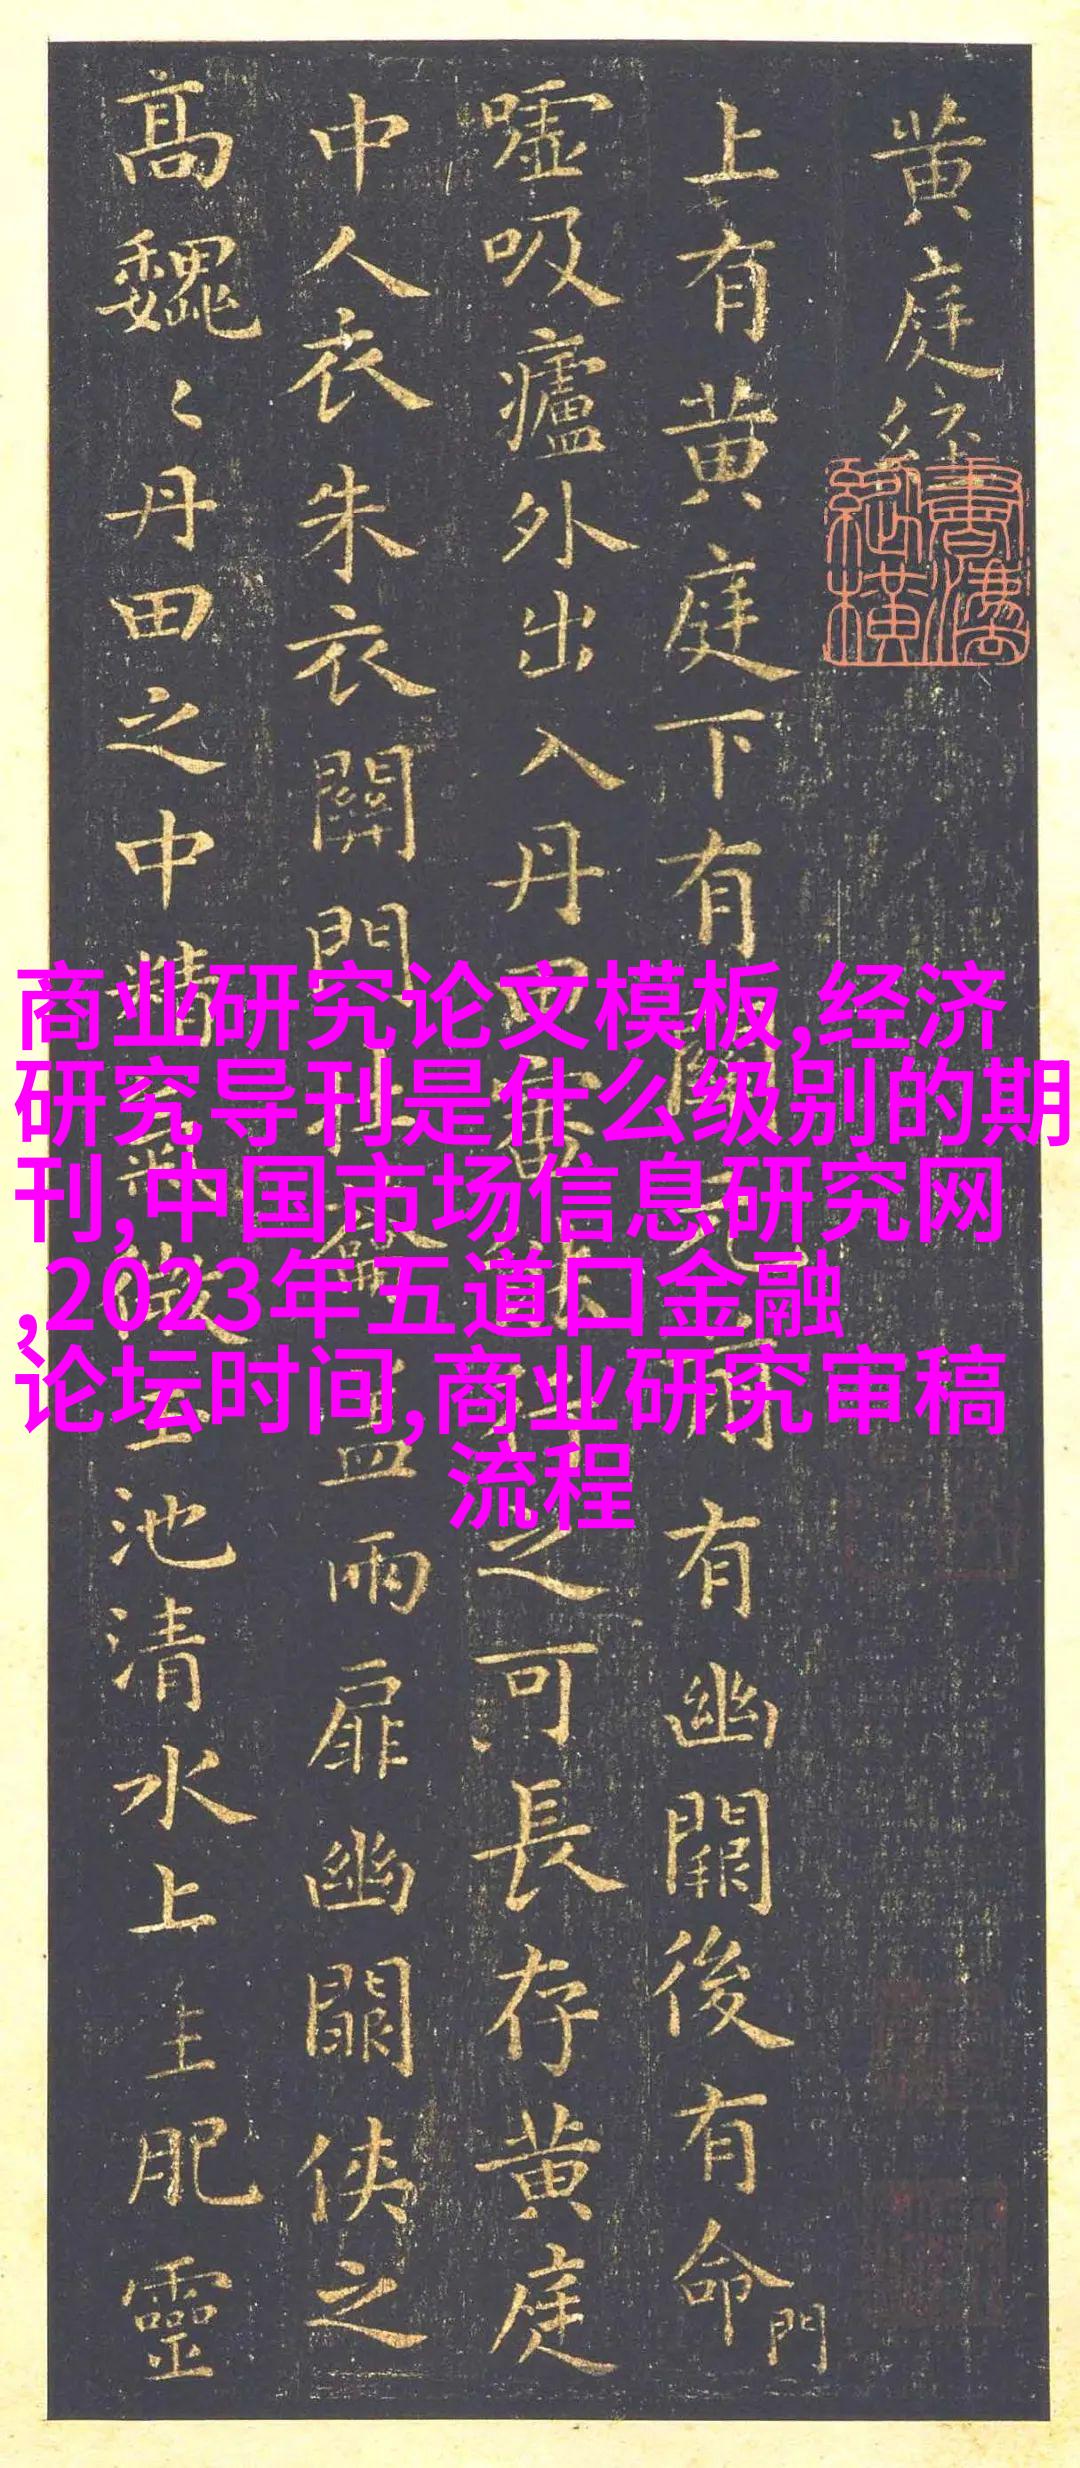 黄庭經
上有黄庭下有關元前有幽闕後有命門
嘘吸廬外出入丹田審能行之可長存黄庭
中人衣朱衣關門壯籥蓋兩扉幽闕俠之
高魏〻丹田之中精氣微玉池清水上生肥靈
商业研究论文模板,经济
研究导刊是什么级别的期
刊,中国市场信息研究网
,2023年五道口金融
论坛时间,商业研究审稿
流程